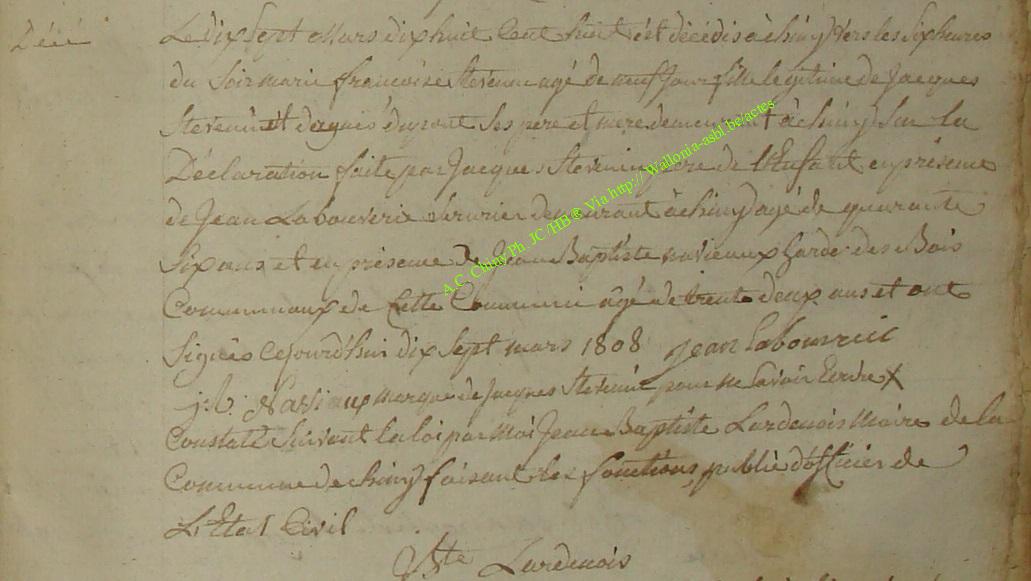 Décè
Le dix sept Mars dix huit Cent huit est décédés à chiny vers les Six heures
du Soir marie francoise Stevenin agé de neuf Jour fille legitime de Jacques
Stevenin et dagnès dupont Ses pere et mere demeurant à chiny Sur la
Déclaration faite par Jacques Stevenin pere de l'Enfant en présence
de Jean Labouverie demeurant à chiny agé de quarante
Six ans et en présence de Jean Baptiste naviaux Garde des Bois
Communaux de Cette Commune agé de trente deux ans et ont
Signées Cejourd'hui dix Sept mars 1808 Jean labouverie
j.b. Naviaux marque de Jacques Stevenin pour ne Savoir Ecrire X
Constaté Suivant la loi par Moi Jean Baptiste Lardenois Maire de la
Commune de chiny faisant les fonctions publié d'officier de
L'Etat Civil
JBte Lardenois
A.C. Chiny Ph. JC/HB® Via http://Wallonia-asbl.be/actes